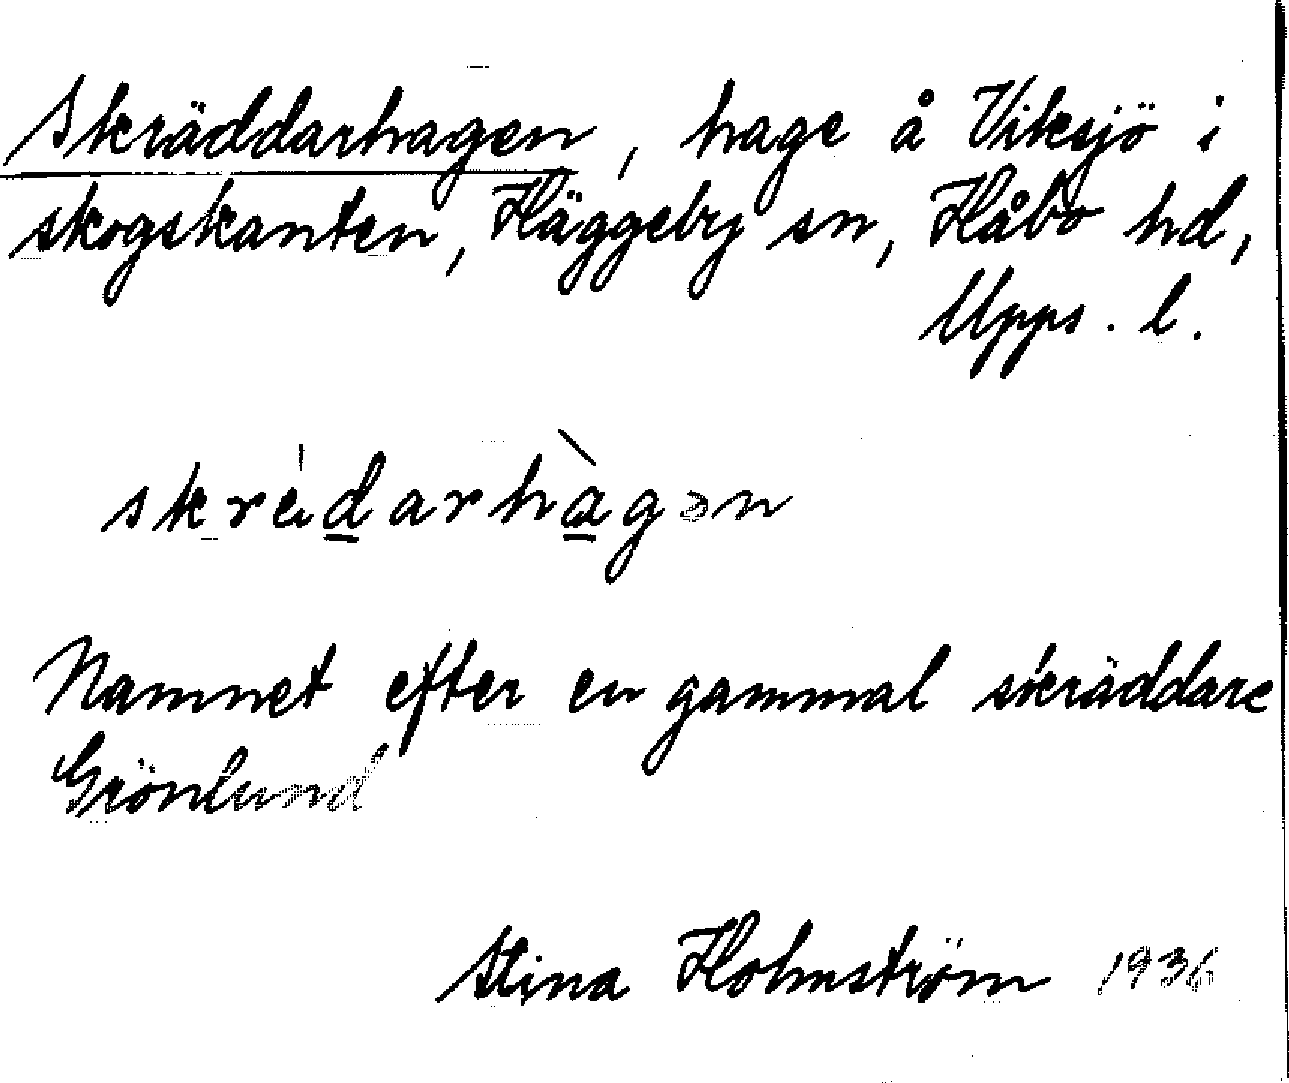 Skräddarhagen, hage å Viksjö i
skogskanten, Häggeby sn, Håbo hd,
Upps. l.
skrèdarhàgən
Namnet efter en gammal skräddare
Grönlund
Stina Holmström 1936